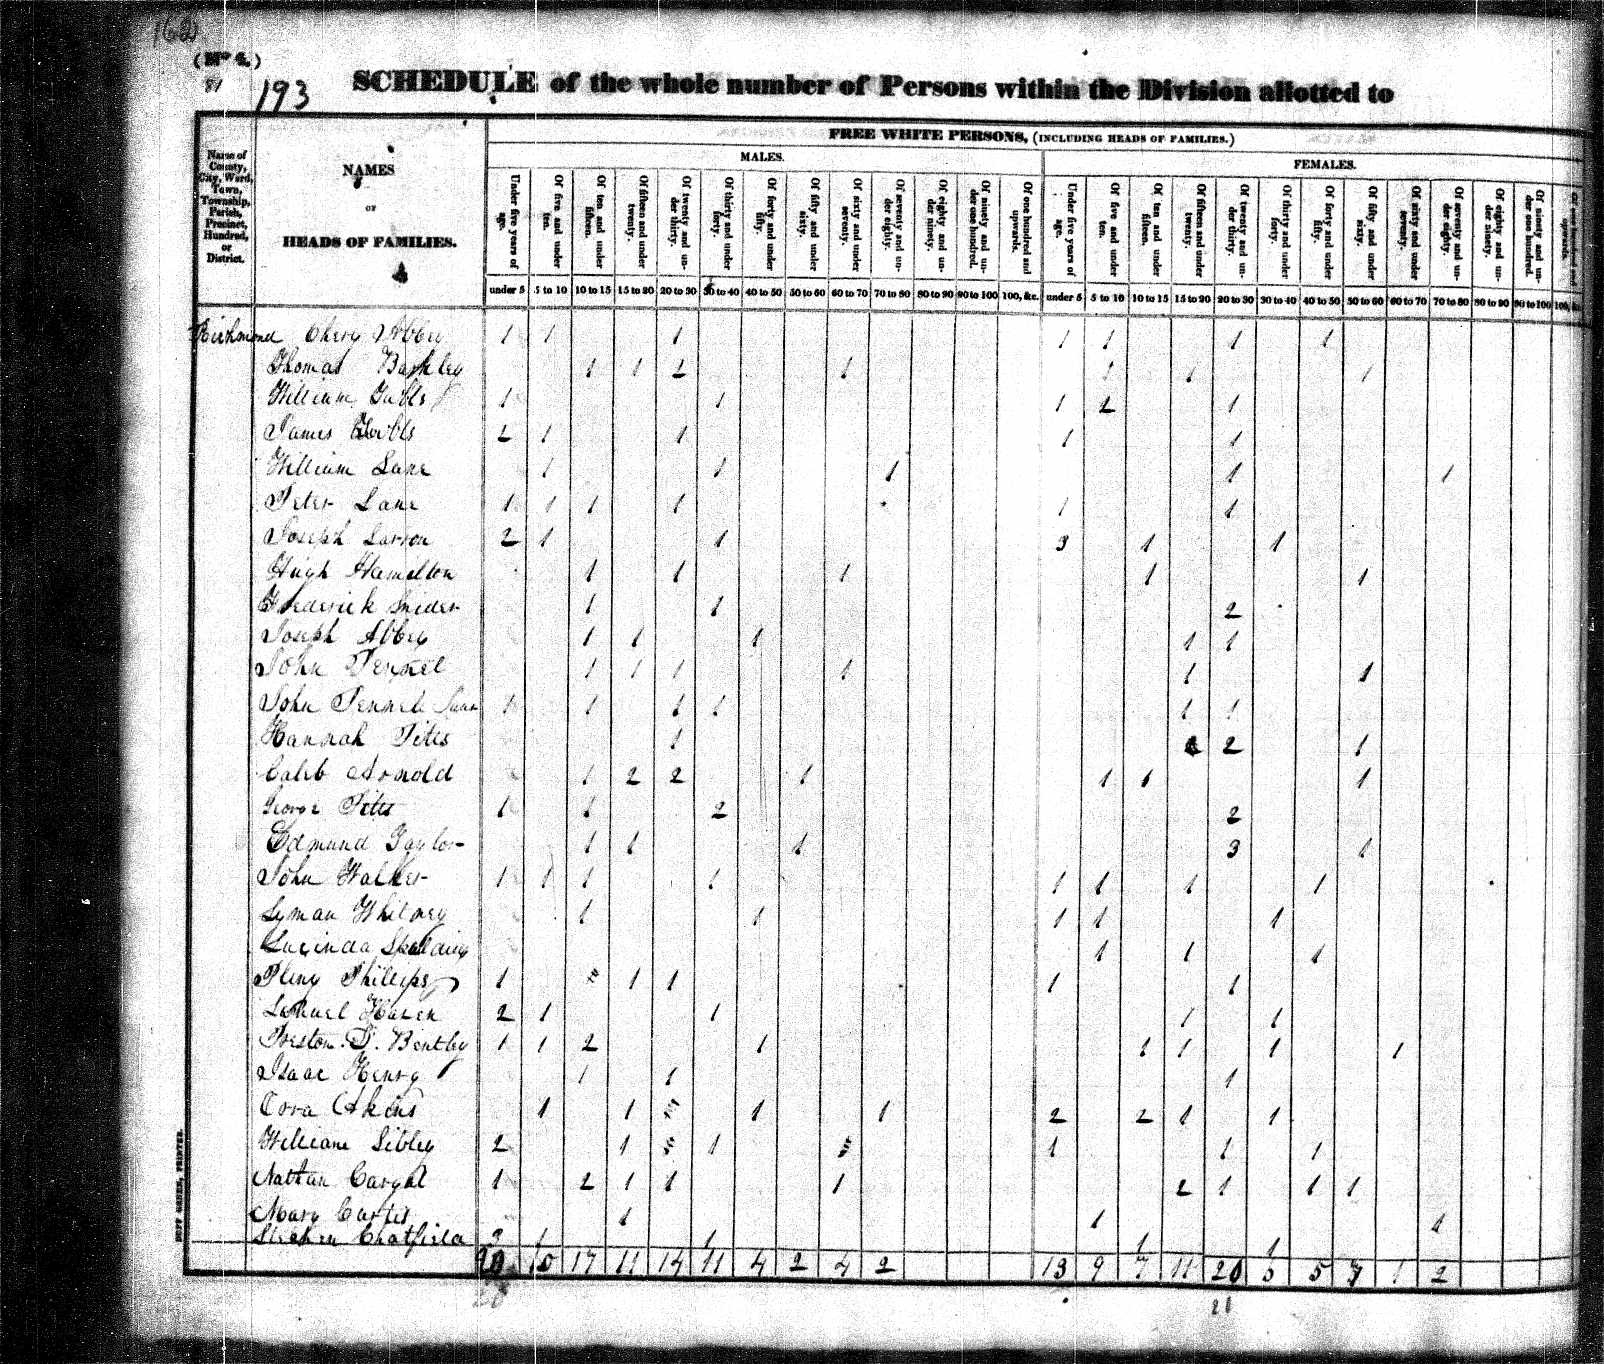 162
(No 4.)
81 193 SCHEDULE of the whole number of Persons within the Division allotted to
FREE WHITE PERSONS, (INCLUDING HEADS OF FAMILIES.)
MALES. FEMALES.
Name of County, City, Ward, Town, Township, Parish, Precinct, Hundred, or District.
NAMES
OF
HEADS OF FAMILIES.
Under five years of age. Of five and under ten. Of ten and under fifteen. Of fifteen and under twenty. Of twenty and under thirty. Of thirty and under forty. Of forty and under fifty. Of fifty and under sixty. Of sixty and under seventy. Of seventy and under eighty. Of eighty and under ninety. Of ninety and under one hundred. Of one hundred and upwards. Under five years of age. Of five and under ten. Of ten and under fifteen. Of fifteen and under twenty. Of twenty and under thirty. Of thirty and under forty. Of forty and under fifty. Of fifty and under sixty. Of sixty and under seventy. Of seventy and under eighty. Of eighty and under ninety. Of ninety and under one hundred. Of one hundred and upwards.
under 5 5 to 10 10 to 15 15 to 20 20 to 30 30 to 40 40 to 50 50 to 60 60 to 70 70 to 80 80 to 90 90 to 100 100, &c. under 5 5 to 10 10 to 15 15 to 20 20 to 30 30 to 40 40 to 50 50 to 60 60 to 70 70 to 80 80 to 90 90 to 100 100, &c
Richmond Chery Abbey 1 1 1 1 1 1 1
Thomas Barkley 1 1 2 1 1 1 1
William 1 1 1 2 1
James 2 1 1 1 1
William Lane 1 1 1 1 1
Peter Lane 1 1 1 1 1 1
Joseph 2 1 1 3 1 1
Hugh Hamelton 1 1 1 1 1
Frederick Snider 1 1 2
Joseph Abbey 1 1 1 1 1
John Pennel 1 1 1 1 1 1
John Pennel 1 1 1 1 1 1
Hannah Tites 1 1 2 1
Caleb Arnold 1 2 2 1 1 1 1
George Tites 1 1 2 2
Edmund Taylor 1 1 1 3 1
John Walker 1 1 1 1 1 1 1 1
Lyman Whitney 1 1 1 1 1
Lucinda Spalding 1 1 1
Pliny Phillips 1 1 1 1 1
Lemuel Hazen 2 1 1 1 1
Preston. P. Bentley 1 1 2 1 1 1 1 1
Isaac Henry 1 1 1
Akins 1 1 1 1 2 2 1 1
William Sibley 2 1 1 1 1 1
Nathan 1 2 1 1 1 2 1 1 1
Mary Curtis 1 1 1
Stephen Chatfield 3 1 1 1 1
20 10 17 11 14 11 4 2 4 2 13 9 7 11 20 5 5 7 1 2
20 21
DUFF GREEN, PRINTER.